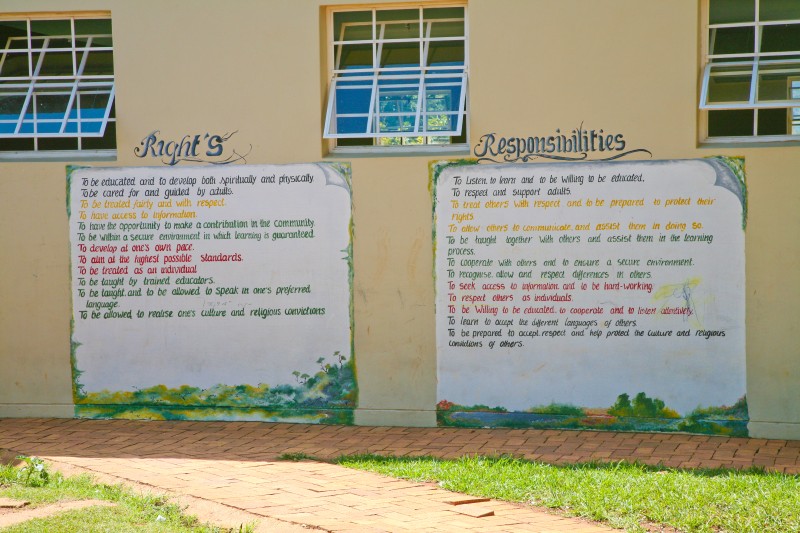 Right'S
To be educated and to develop both spiritually and physically
To be cared for and guided by adults.
To be treated fairly and with respect.
To have access to information.
To have the opportunity to make a contribution in the community.
To be within a secure environment in which learning is guaranteed.
To develop at one's own pace.
To aim at the highest possible standards.
To be treated as an individual
To be taught by trained educators.
To be taught and to be allowed to speak in one's preferred
language.
To be allowed to realise one's culture and religious convictions
Responsibilities
To Listen, to learn and to be willing to be educated.
To respect and support adults.
To treat others with respect and to be prepared to protect their
rights.
To allow others to communicate and assist them in doing so.
To be taught together with others and assist them in the learning
process.
To cooperate with others and to ensure a secure environment.
To recognise, allow and respect differences in others.
To seek access to information and to be hard-working.
To respect others as individuals.
To be willing to be educated, to cooperate and to listen attentively.
To learn to accept the different languages of others.
To be prepared to accept, respect and help protect the culture and religious
convictions of others.